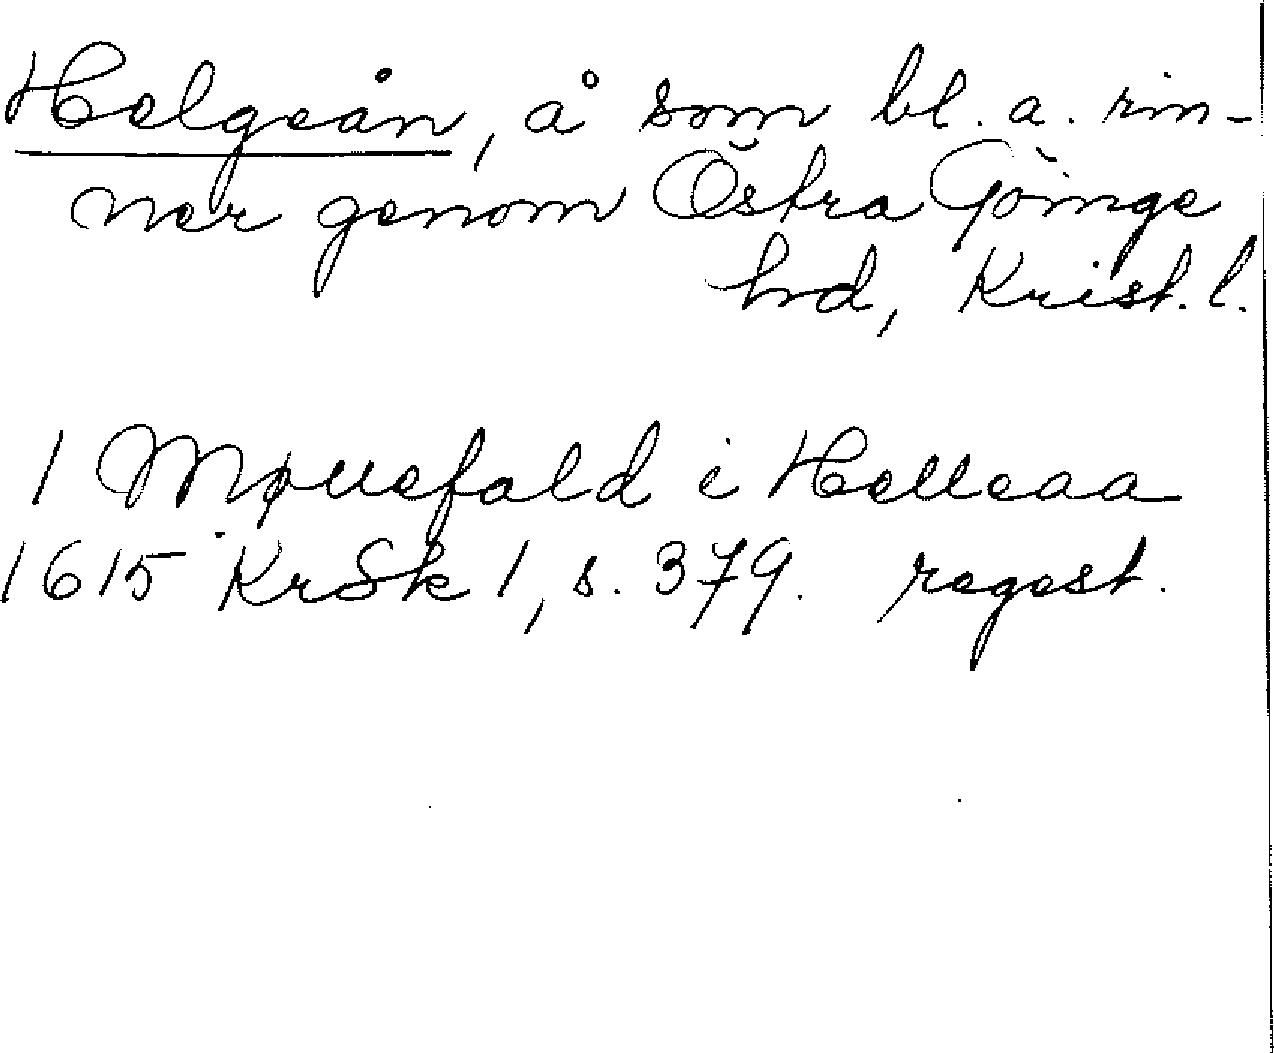 Helgeån, å som bl. a. rin-
ner genom Östra Göinge
hrd, Krist. l.
1 Møllefald i Helleaa
1615 KrSk 1, s. 379. regest.